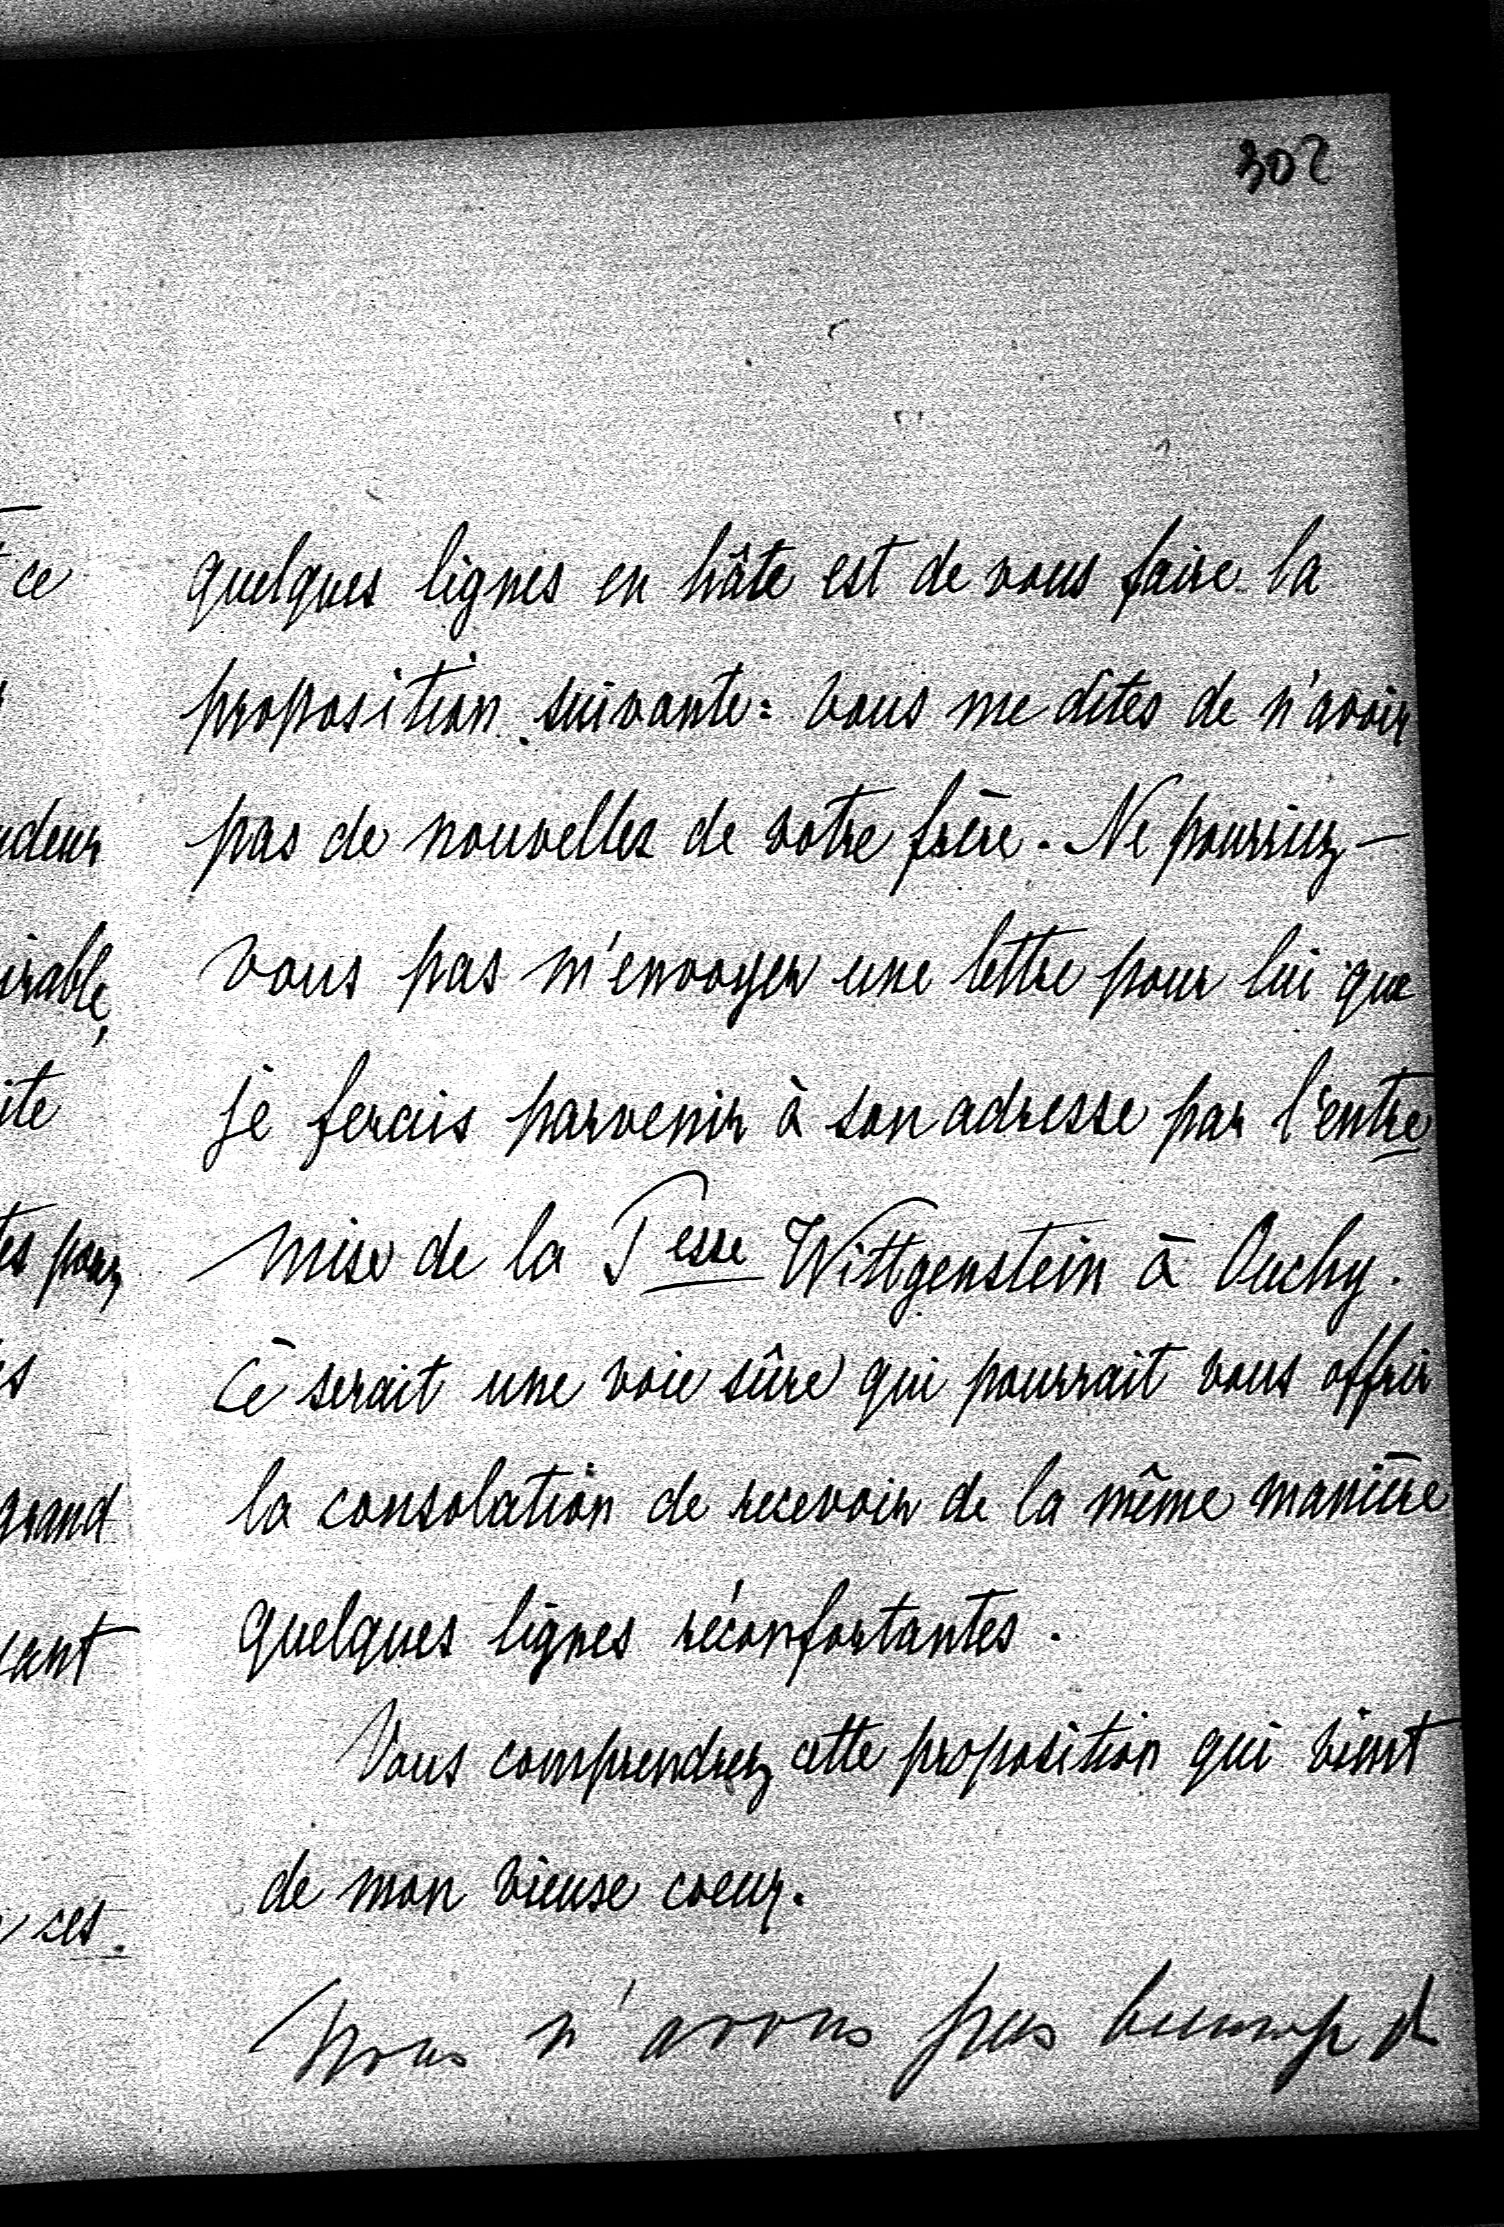 302
quelques lignes en hâte est de vous faire la
proposition suivante: vous me dites de n'avoir
pas de nouvelles de votre frère. Ne pourriez-
vous pas m'envoyer une lettre pour lui que
je ferais parvenir à son adresse par l'entre
mise de la Pesse Wittgenstein à Ouchy.
Ce serait une voie sûre qui pourrait vous offrir
la consolation de recevoir de la même manière
quelques lignes réconfortantes.
Vous comprendrez cette proposition qui vient
de mon vieuse coeur.
Nous n'avons pas beaucoup d
ce
deur
irable,
ite
tes pour
grand
cant
ces.